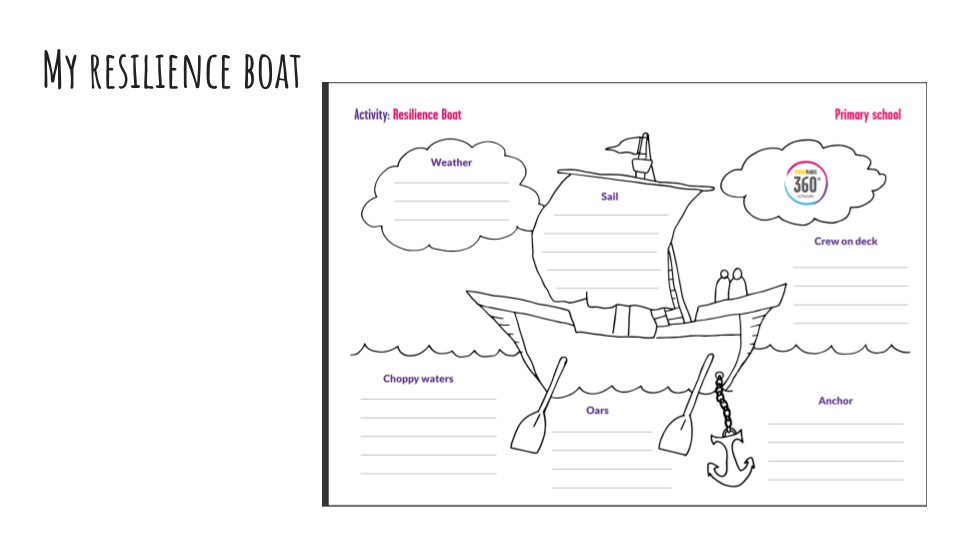 My resilience boat
Activity: Resilience Boat
Primary school
Weather
Sail
360°
schools
Crew on deck
Choppy waters
Oars
Anchor